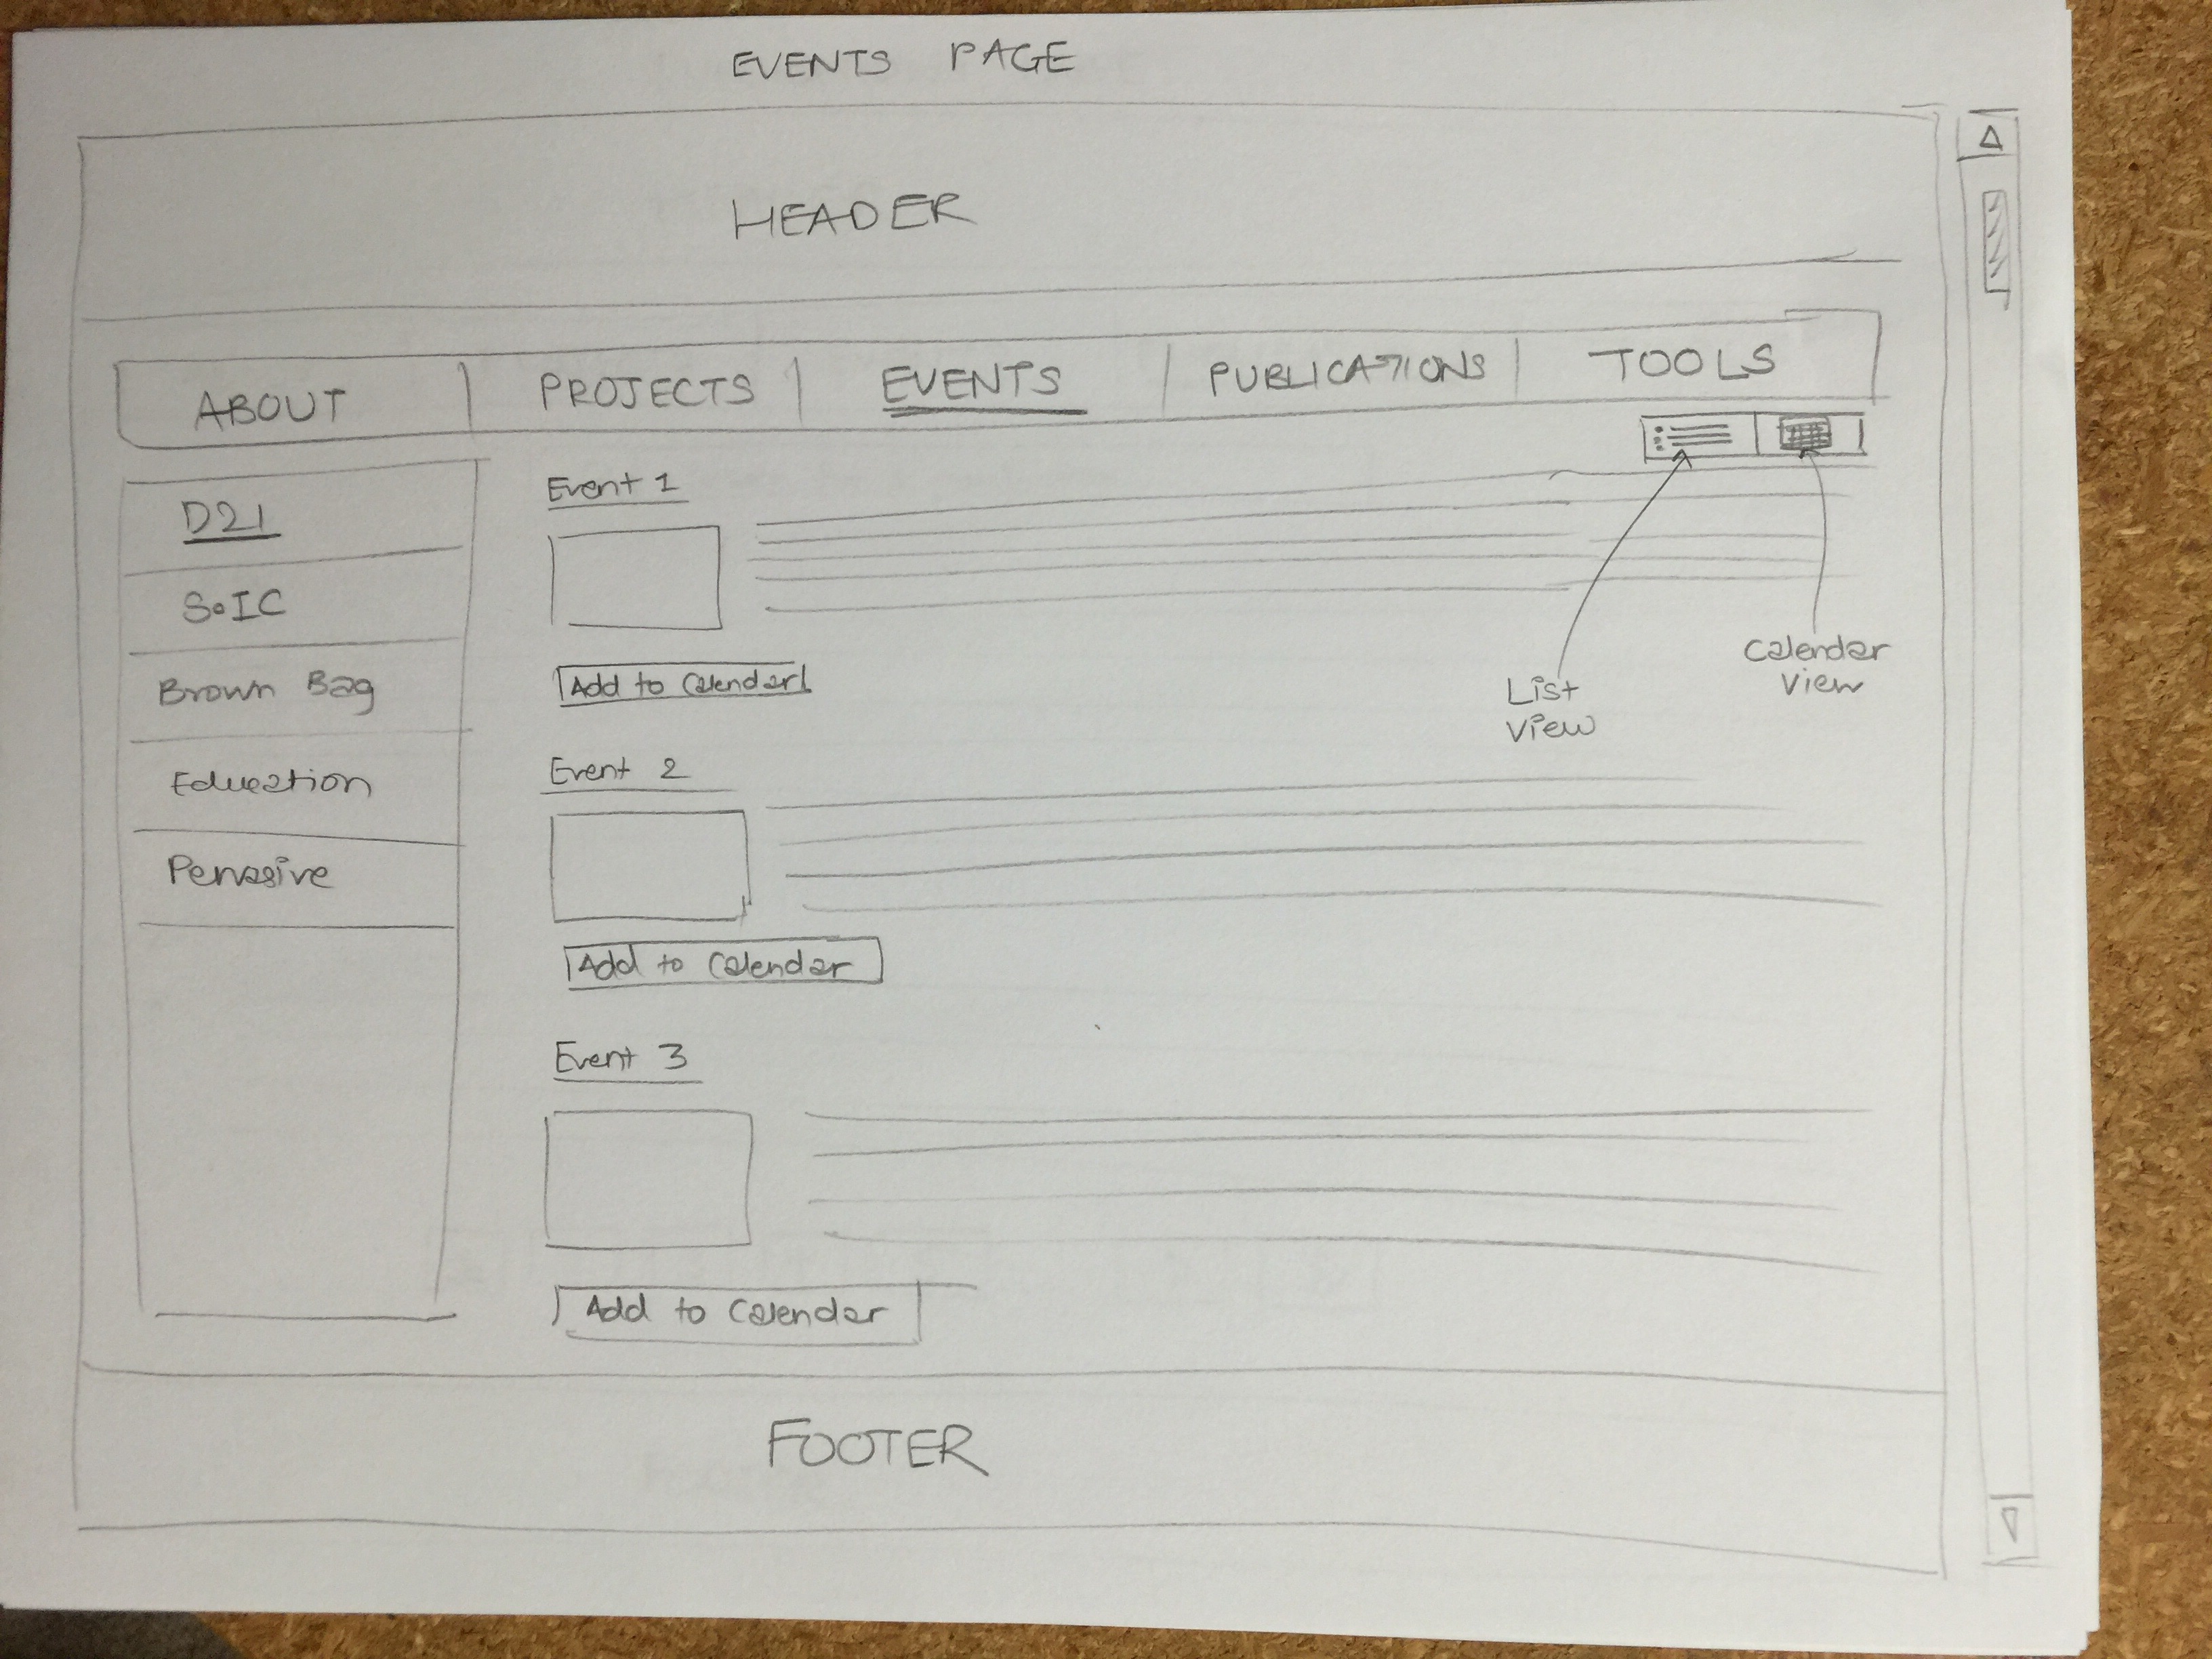 EVENTS PAGE
HEADER
ABOUT PROJECTS EVENTS PUBLICATIONS TOOLS
D2I
SoIC
Brown Bag
Education
Pervasive
Event 1
Add to Calendar
List
View
Calendar
View
Event 2
Add to Calendar
Event 3
Add to Calendar
FOOTER